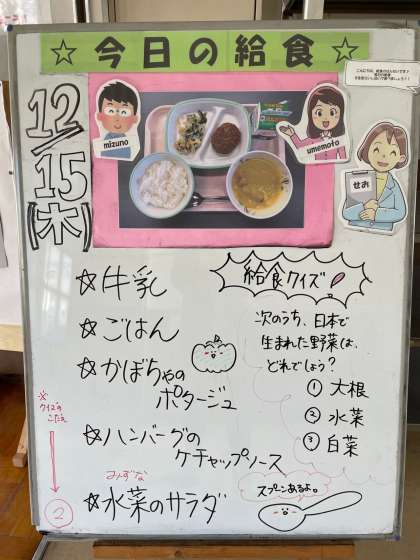 ☆ 今日の給食 ☆
12/15(木)
mizuno
umemoto
せお
☆牛乳
☆ごはん
☆かぼちゃの
ポタージュ
☆ハンバーグの
ケチャップソース
みずな
☆水菜のサラダ
給食クイズ
次のうち、日本で
生まれた野菜は、
どれでしょう?
① 大根
② 水菜
③ 白菜
スプーンあるよ。
※
クイズの
こたえ
②